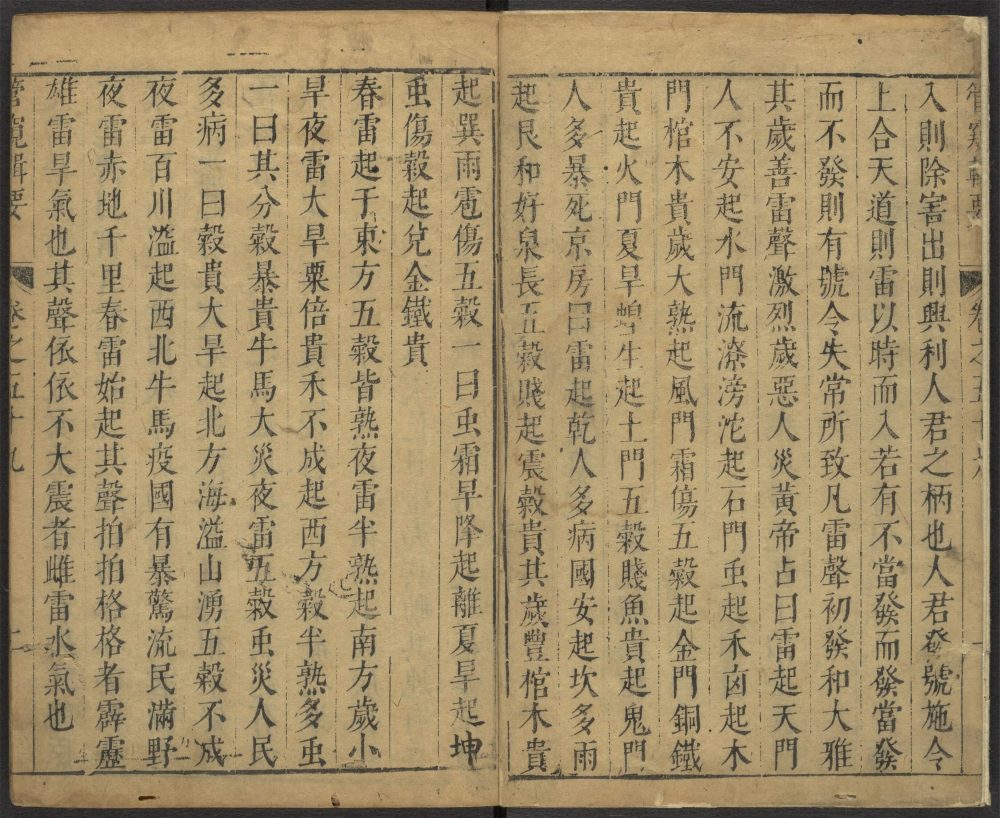 管窺輯要 卷之五十九
入則除害出則興利人君之柄也人君發號施令
上合天道則雷以時而入若有不當發而發當發
而不發則有號令失常所致凡雷聲初發和大雅
其歲善雷聲激烈歲惡人災黃帝占曰雷起天門
人不安起水門流潦滂沱起石門虫起禾囪起木
門棺木貴歲大熟起風門霜傷五穀起金門銅鐵
貴起火門夏旱蝗生起土門五穀賤魚貴起鬼門
人多暴死京房曰雷起乾人多病國安起坎多雨
起艮和好泉長五穀賤起震穀貴其歲豐棺木貴
起巽雨雹傷五穀一曰虫霜旱降起離夏旱起坤
虫傷穀起兌金鐵貴
春雷起于東方五穀皆熟夜雷半熟起南方歲小
旱夜雷大旱粟倍貴禾不成起西方穀半熟多虫
一曰其分穀暴貴牛馬大災夜雷五穀虫災人民
多病一曰穀貴大旱起北方海溢山湧五穀不成
夜雷百川溢起西北牛馬疫國有暴驚流民滿野
夜雷赤地千里春雷始起其聲拍拍格格者霹靂
雄雷旱氣也其聲依依不大震者雌雷水氣也
管窺輯要 卷之五十九 二